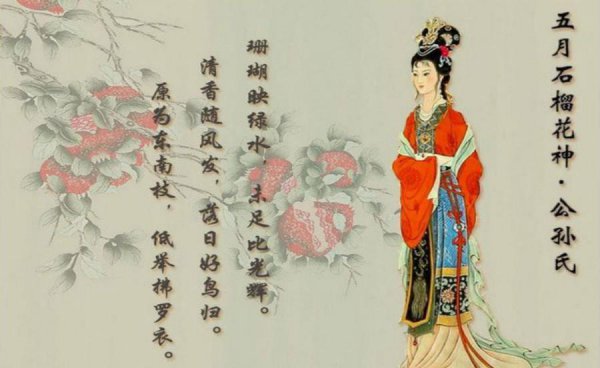 五月石榴花神·公孙氏
珊瑚映绿水，未足比光辉。
清香随风发，落日好鸟归。
原为东南枝，低举拂罗衣。